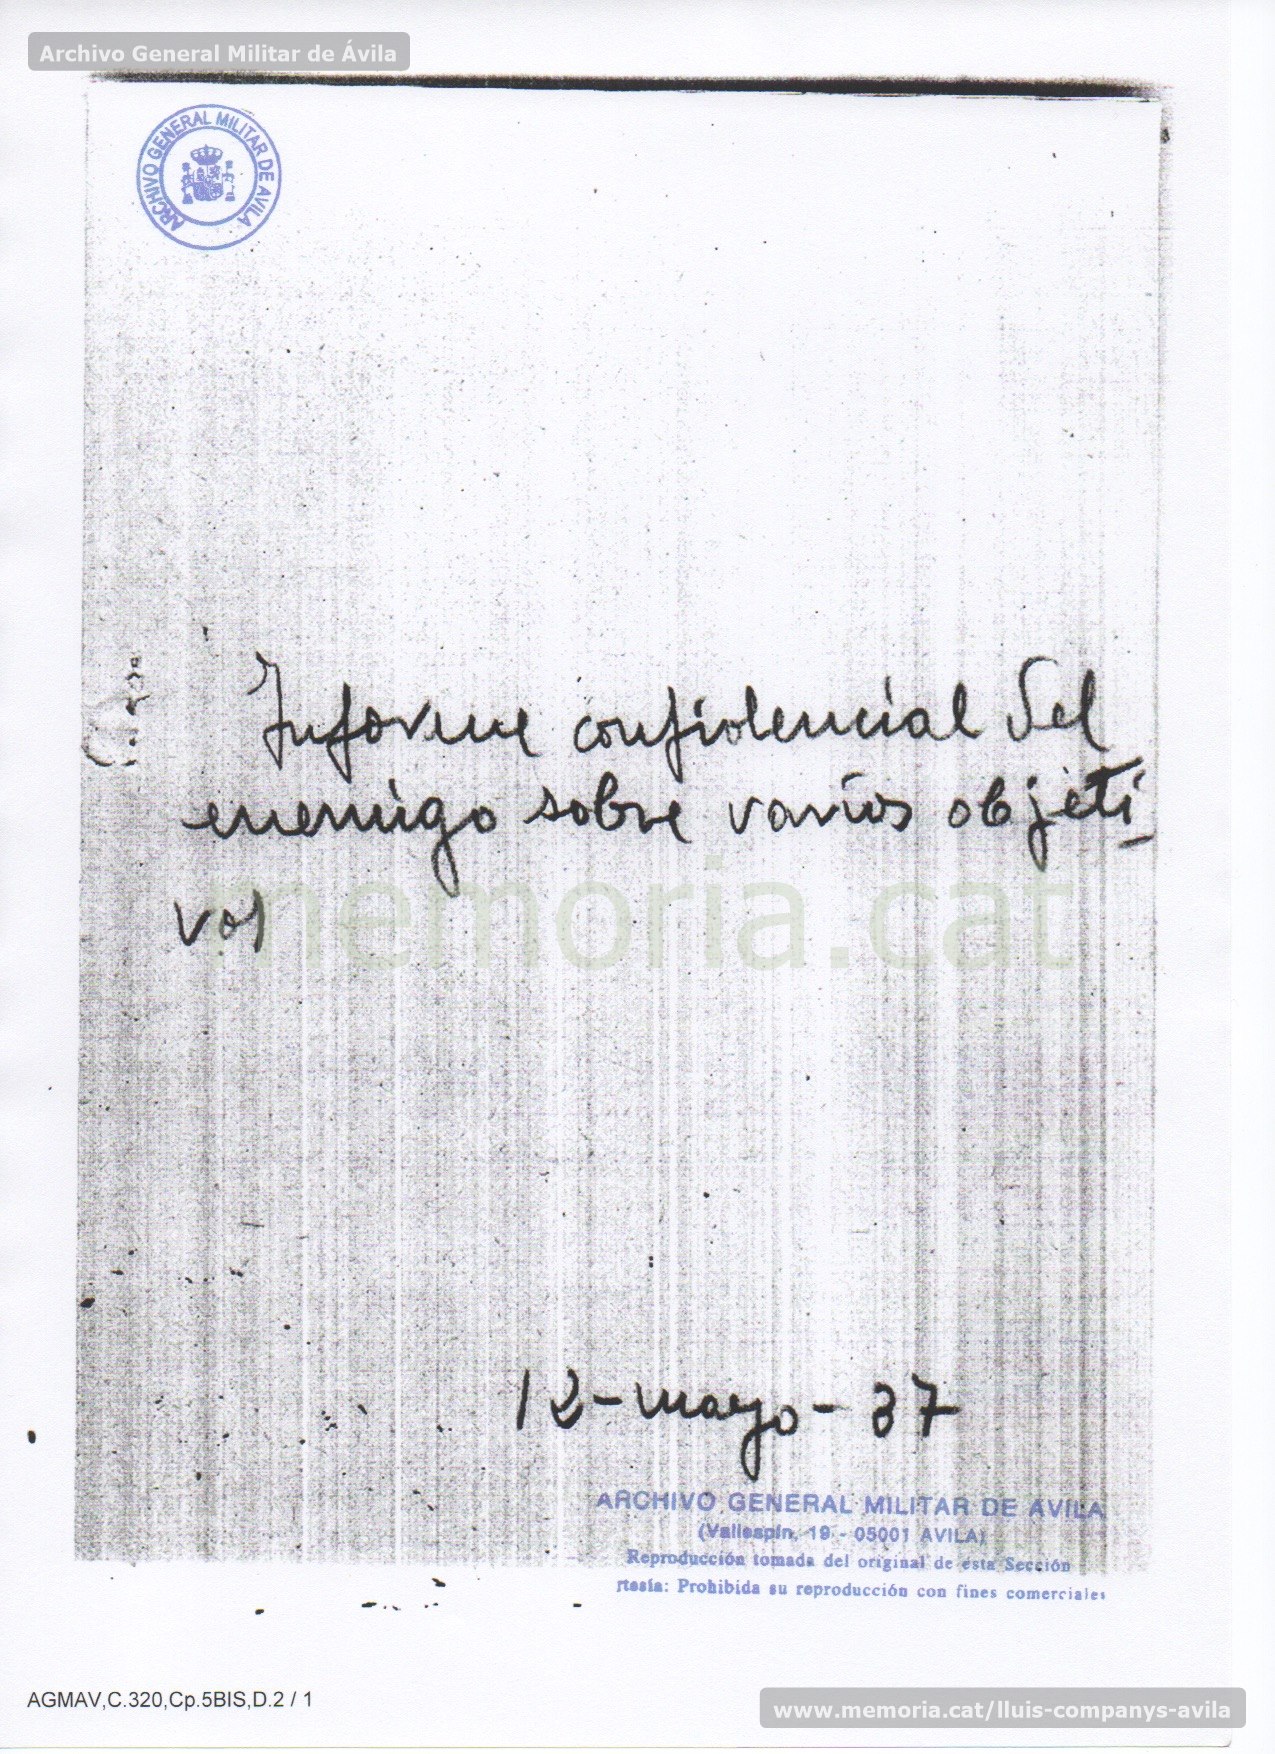 Archivo General Militar de Ávila
ARCHIVO GENERAL MILITAR DE AVILA
Informe confidencial del
enemigo sobre varios objeti
vos
memoria.cat
12-mayo-37
ARCHIVO GENERAL MILITAR DE AVILA
(Vallespin, 19 - 05001 AVILA)
Reproducción tomada del original de esta Sección
rtesía: Prohibida su reproducción con fines comerciales
AGMAV,C.320,Cp.5BIS,D.2 / 1
www.memoria.cat/lluis-companys-avila